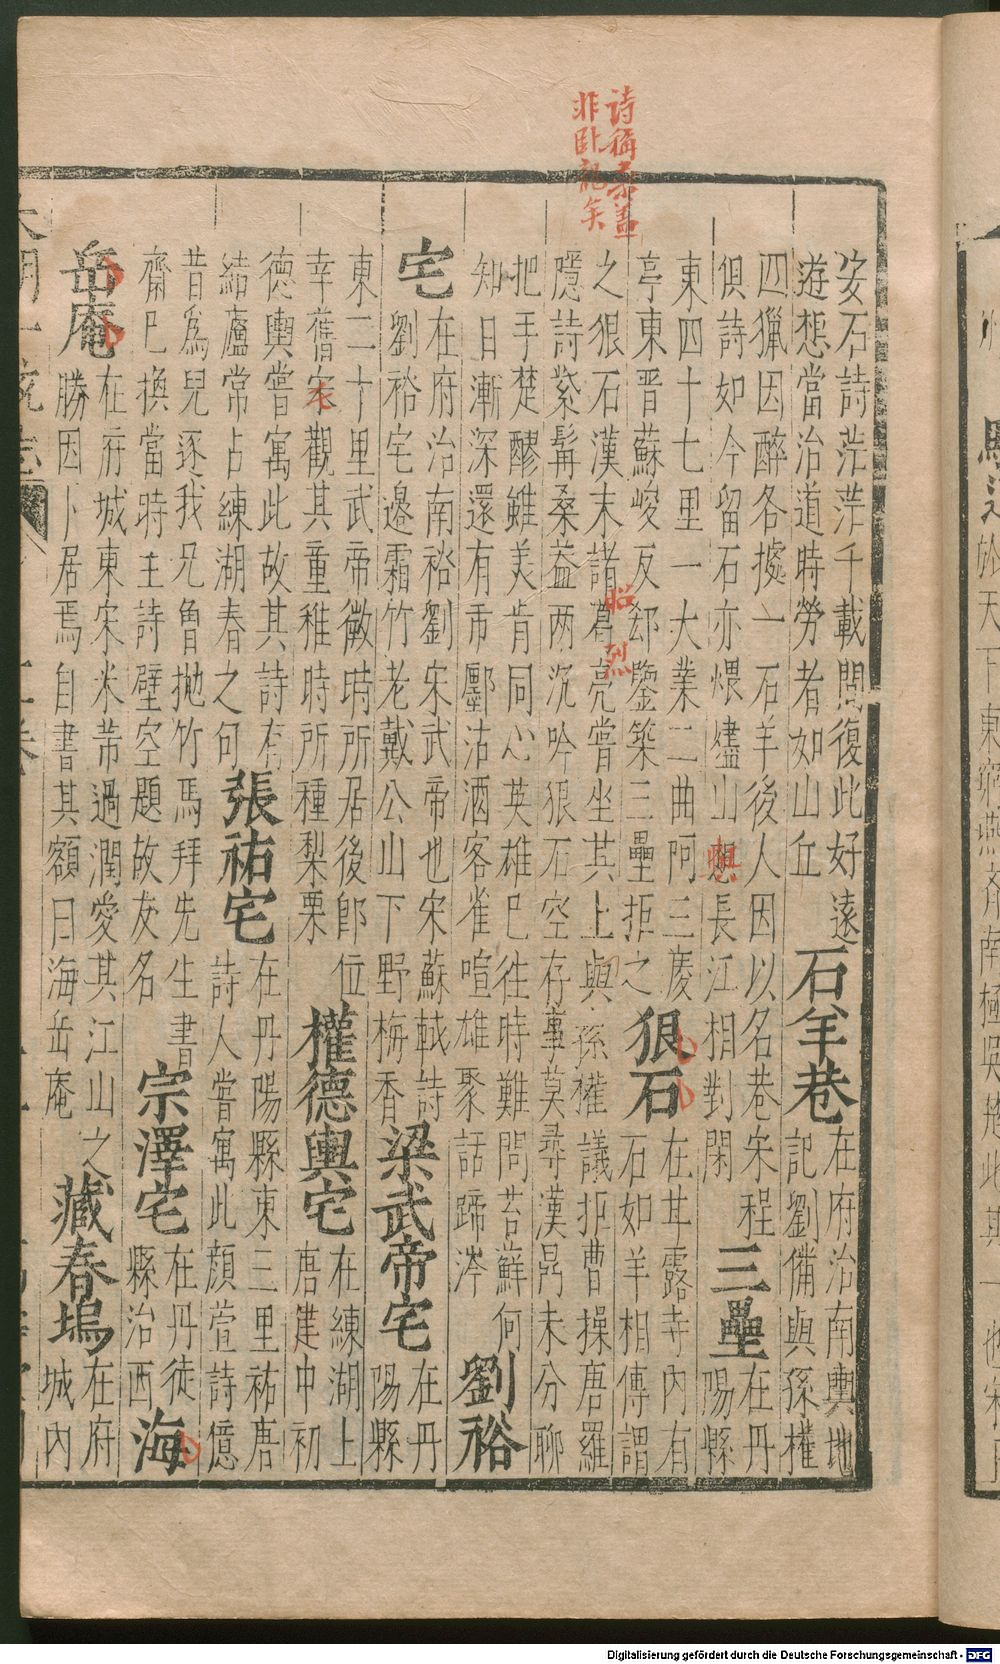 詩稱桑盖
非臥龍矣
安石詩茫茫千載間復此好遠
遊想當治道時勞者如山丘
石羊巷
在府治南輿地
記劉備與孫權
四獵因醉各據一石羊後人因以名巷宋程
俱詩如今留石亦煨燼山想長江相對閑
三壘
在丹
陽縣
東四十七里一大業二曲阿三慶
亭東晋蘇峻反郄鑒築三壘拒之
狠石
在甘露寺內有
石如羊相傳謂
之狠石漢末諸葛亮嘗坐其上與孫權議拒曹操唐羅
昭烈
隱詩紫髯桑葢兩沉吟狠石空存事莫尋漢鼎未分聊
把手楚醪雖美肯同心英雄巳往時難問苔蘚何
知日漸深還有市鄽沽酒客雀喧雄聚話蹄涔
劉裕
宅
在府治南裕劉宋武帝也宋蘇軾詩
劉裕宅邊霜竹老戴公山下野梅香
梁武帝宅
在丹
陽縣
東二十里武帝微時所居後即位
幸舊宅觀其童稚時所種梨栗
權德輿宅
在練湖上
唐建中初
德輿嘗寓此故其詩有
結廬常占練湖春之句
張祐宅
在丹陽縣東三里祐唐
詩人嘗寓此顔萱詩億
昔爲兒逐我兄曾拋竹馬拜先生書
齋已換當時主詩壁空題故友名
宗澤宅
在丹徒
縣治西
海
岳庵
在府城東宋米芾過潤愛其江山之
勝因卜居焉自書其額曰海岳庵
藏春塢
在府
城內
Digitalisierung gefördert durch die Deutsche Forschungsgemeinschaft - DFG